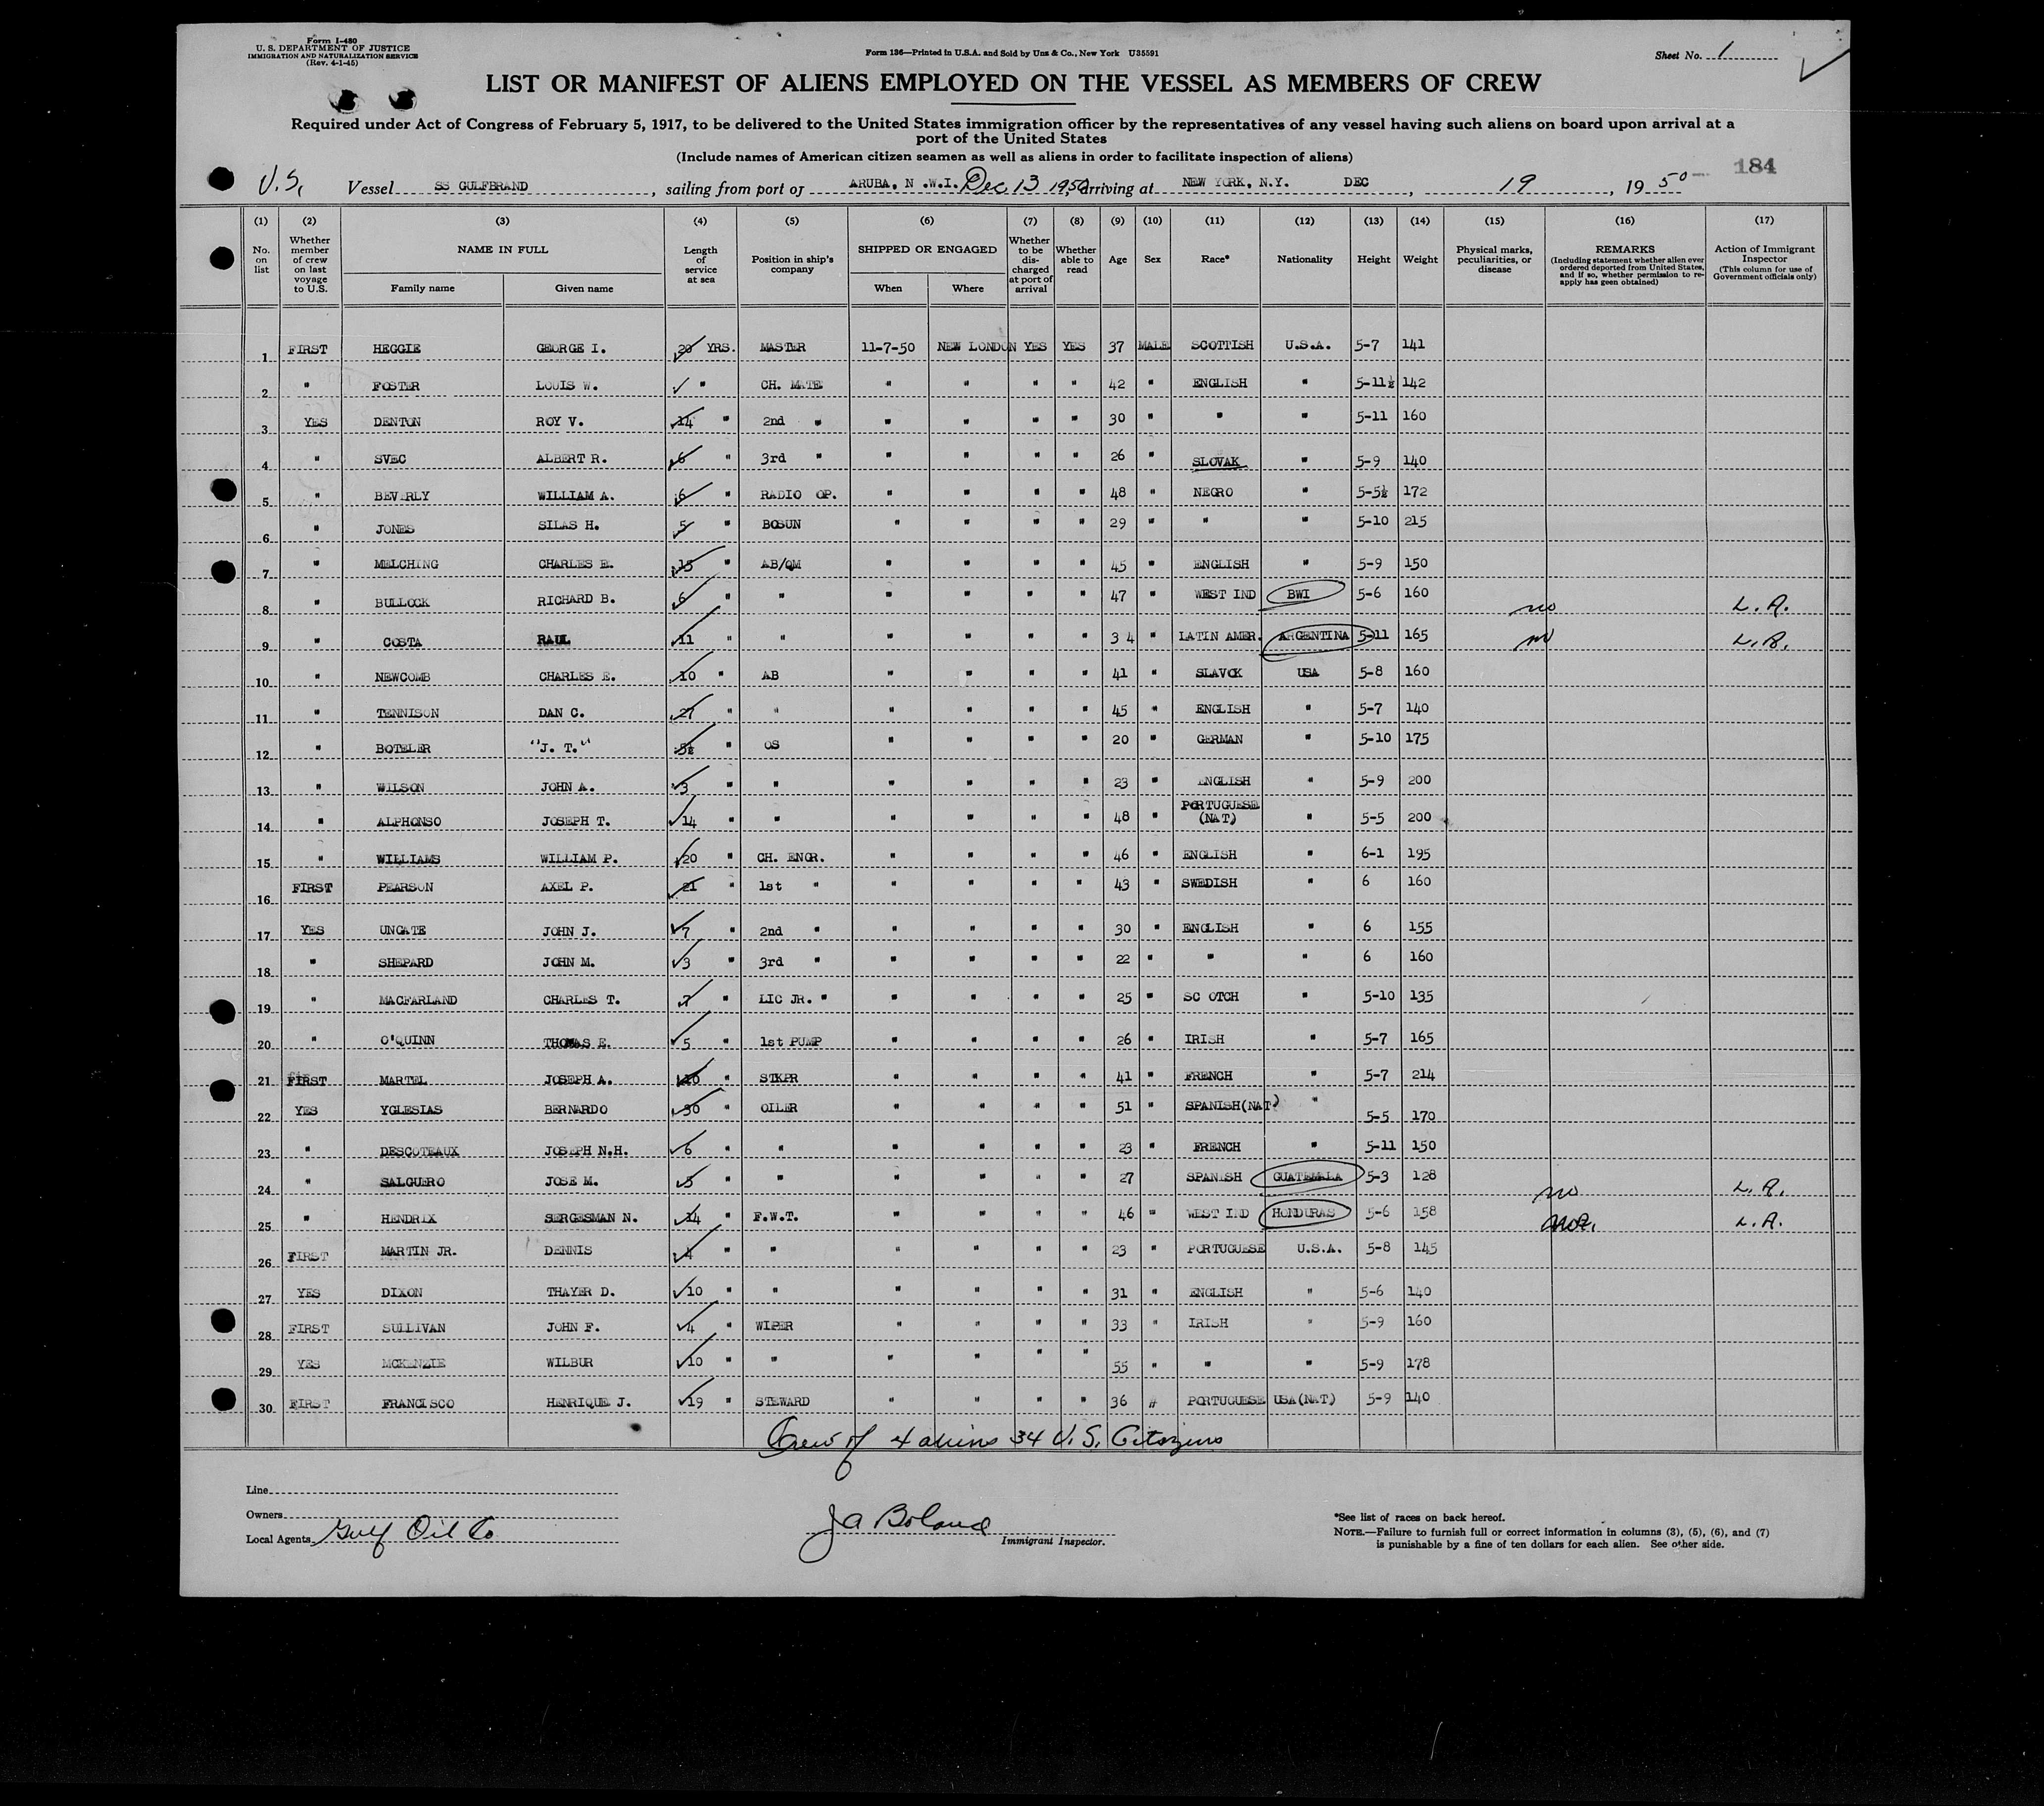 Form I-480
U. S. DEPARTMENT OF JUSTICE
IMMIGRATION AND NATURALIZATION SERVICE
(Rev. 4-1-45)
Form 136—Printed in U.S.A. and Sold by Unz & Co., New York U35591
Sheet No. 1
LIST OR MANIFEST OF ALIENS EMPLOYED ON THE VESSEL AS MEMBERS OF CREW
Required under Act of Congress of February 5, 1917, to be delivered to the United States immigration officer by the representatives of any vessel having such aliens on board upon arrival at a
port of the United States
(Include names of American citizen seamen as well as aliens in order to facilitate inspection of aliens)
184
U.S. Vessel SS GULFBRAND, sailing from port of ARUBA, N .W.I. Dec 13 1950, arriving at NEW YORK, N.Y. DEC, 19, 1950
(1) (2) (3) (4) (5) (6) (7) (8) (9) (10) (11) (12) (13) (14) (15) (16) (17)
No. on list
Whether member of crew on last voyage to U.S.
NAME IN FULL
Family name
Given name
Length of service at sea
Position in ship's company
SHIPPED OR ENGAGED
When
Where
Whether to be discharged at port of arrival
Whether able to read
Age
Sex
Race*
Nationality
Height
Weight
Physical marks, peculiarities, or disease
REMARKS
(Including statement whether alien ever ordered deported from United States, and if so, whether permission to re-apply has geen obtained)
Action of Immigrant Inspector
(This column for use of Government officials only)
1 FIRST HEGGIE GEORGE I. 20 YRS. MASTER 11-7-50 NEW LONDON YES YES 37 MALE SCOTTISH U.S.A. 5-7 141
2 " FOSTER LOUIS W. " CH. MATE " " " " 42 " ENGLISH " 5-11½ 142
3 YES DENTON ROY V. 14 " 2nd " " " " " 30 " " " 5-11 160
4 " SVEC ALBERT R. 6 " 3rd " " " " " 26 " SLOVAK " 5-9 140
5 " BEVERLY WILLIAM A. 6 " RADIO OP. " " " " 48 " NEGRO " 5-5½ 172
6 " JONES SILAS H. 5 " BOSUN " " " " 29 " " " 5-10 215
7 " MELCHING CHARLES E. 15 " AB/QM " " " " 45 " ENGLISH " 5-9 150
8 " BULLOCK RICHARD B. 6 " " " " " " 47 " WEST IND BWI 5-6 160 no L.A.
9 " COSTA RAUL 11 " " " " " " 3 4 " LATIN AMER. ARGENTINA 5-11 165 no L.A.
10 " NEWCOMB CHARLES E. 10 " AB " " " " 41 " SLAVOK USA 5-8 160
11 " TENNISON DAN C. 27 " " " " " " 45 " ENGLISH " 5-7 140
12 " BOTELER "J. T." 5½ " OS " " " " 20 " GERMAN " 5-10 175
13 " WILSON JOHN A. 3 " " " " " " 23 " ENGLISH " 5-9 200
14 " ALPHONSO JOSEPH T. 14 " " " " " " 48 " PORTUGUESE (NAT) " 5-5 200
15 " WILLIAMS WILLIAM P. 20 " CH. ENGR. " " " " 46 " ENGLISH " 6-1 195
16 FIRST PEARSON AXEL P. 21 " 1st " " " " " 43 " SWEDISH " 6 160
17 YES UNGATE JOHN J. 7 " 2nd " " " " " 30 " ENGLISH " 6 155
18 " SHEPARD JOHN M. 3 " 3rd " " " " " 22 " " " 6 160
19 " MACFARLAND CHARLES T. 7 " LIC JR. " " " " " 25 " SC OTCH " 5-10 135
20 " O'QUINN THOMAS E. 5 " 1st PUMP " " " " 26 " IRISH " 5-7 165
21 FIRST MARTEL JOSEPH A. 10 " STKPR " " " " 41 " FRENCH " 5-7 214
22 YES YGLESIAS BERNARDO 30 " OILER " " " " 51 " SPANISH(NAT) " 5-5 170
23 " DESCOTEAUX JOSEPH N.H. 6 " " " " " " 23 " FRENCH " 5-11 150
24 " SALGUERO JOSE M. 5 " " " " " " 27 SPANISH GUATEMALA 5-3 128 no L.A.
25 " HENDRIX SERGESMAN N. 14 " F.W.T. " " " " 46 " WEST IND HONDURAS 5-6 158 L.A.
26 FIRST MARTIN JR. DENNIS 4 " " " " " " 23 " PORTUGUESE U.S.A. 5-8 145
27 YES DIXON THAYER D. 10 " " " " " " 31 " ENGLISH " 5-6 140
28 FIRST SULLIVAN JOHN F. 4 " WIPER " " " " 33 " IRISH " 5-9 160
29 YES MCKENZIE WILBUR 10 " " " " " " 55 " " " 5-9 178
30 FIRST FRANCISCO HENRIQUE J. 19 " STEWARD " " " " 36 " PORTUGUESE USA(NAT) 5-9 140
Crew of 4 aliens 34 U.S. Citizens
Line
Owners
Local Agents Gulf Oil Co
JA Boland
Immigrant Inspector.
*See list of races on back hereof.
NOTE.—Failure to furnish full or correct information in columns (3), (5), (6), and (7)
is punishable by a fine of ten dollars for each alien. See other side.